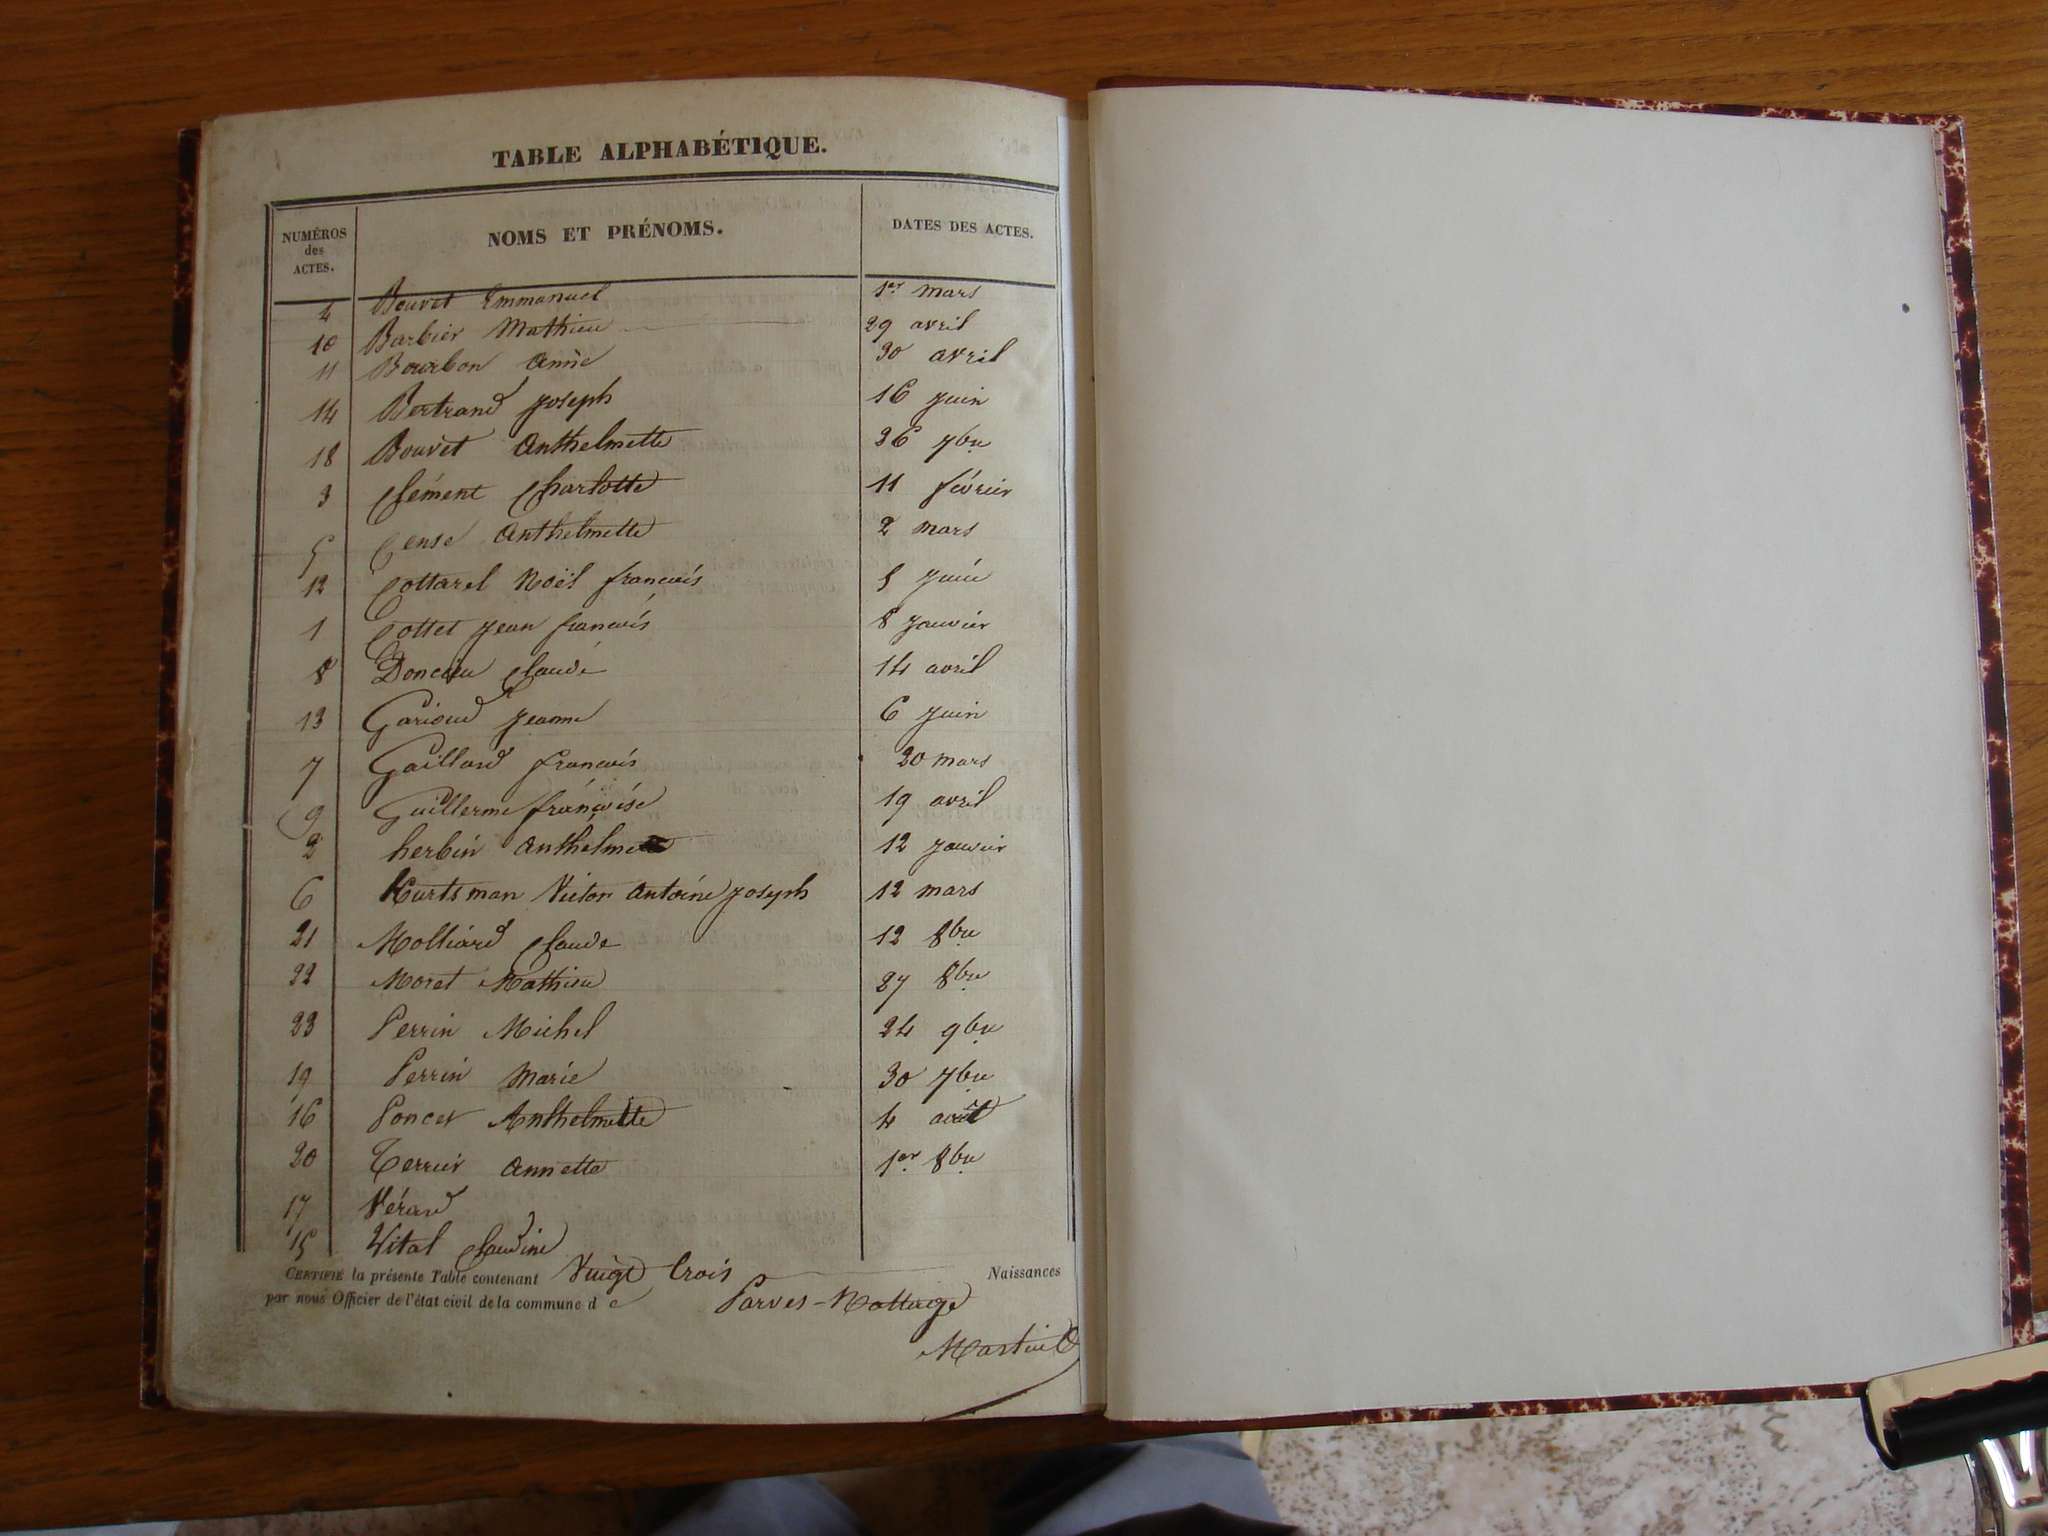 TABLE ALPHABÉTIQUE.
NUMÉROS des ACTES. NOMS ET PRÉNOMS. DATES DES ACTES.
4 Bouvet Emmanuel 1er mars
10 Barbier Mathieu 29 avril
11 Bourbon Anne 30 avril
14 Bertrand Joseph 16 juin
18 Bouvet Anthelmette 26 7bre
3 Clément Charlotte 11 février
5 Cense Anthelmette 2 mars
12 Cottarel Noël françois 5 juin
1 Cottet Jean françois 8 janvier
8 Doncieu Claude 14 avril
13 Garioud Jeanne 6 juin
7 Gaillard françois 20 mars
9 Guillerme françoise 19 avril
2 herbin Anthelme 12 janvier
6 Kurtsman Victor Antoine Joseph 12 mars
21 Molliard Claude 12 8bre
22 Moret Mathieu 27 8bre
23 Perrin Michel 24 9bre
19 Perrin Marie 30 7bre
16 Poncet Anthelmette 4 août
20 Terrier Annette 1er 8bre
17 Vérand
15 Vital Claudine
CERTIFIÉ la présente Table contenant Vingt trois Naissances
par nous Officier de l'état civil de la commune d e Parves-Nattage
Martin